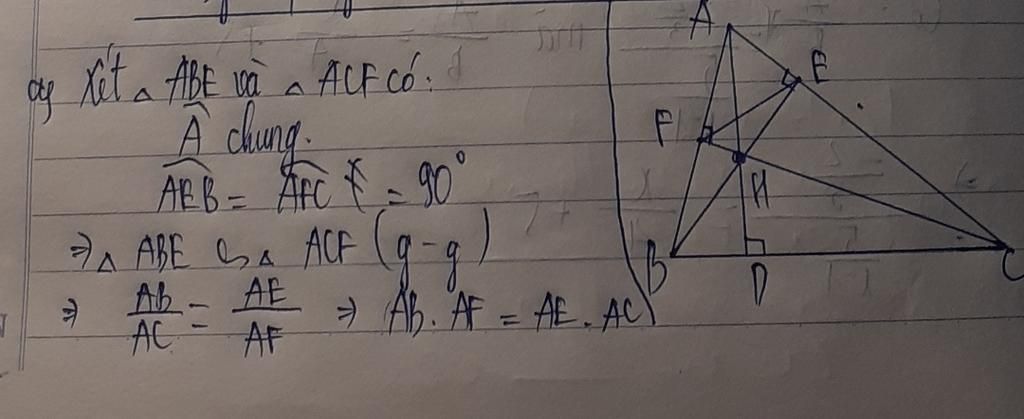 a) Xét △ ABE và △ ACF có:
 chung.
AEB = AFC = 90°
⇒ △ ABE ∽ △ ACF (g-g)
⇒ AB/AC = AE/AF ⇒ AB. AF = AE. AC
A
E
F
H
B
D
C